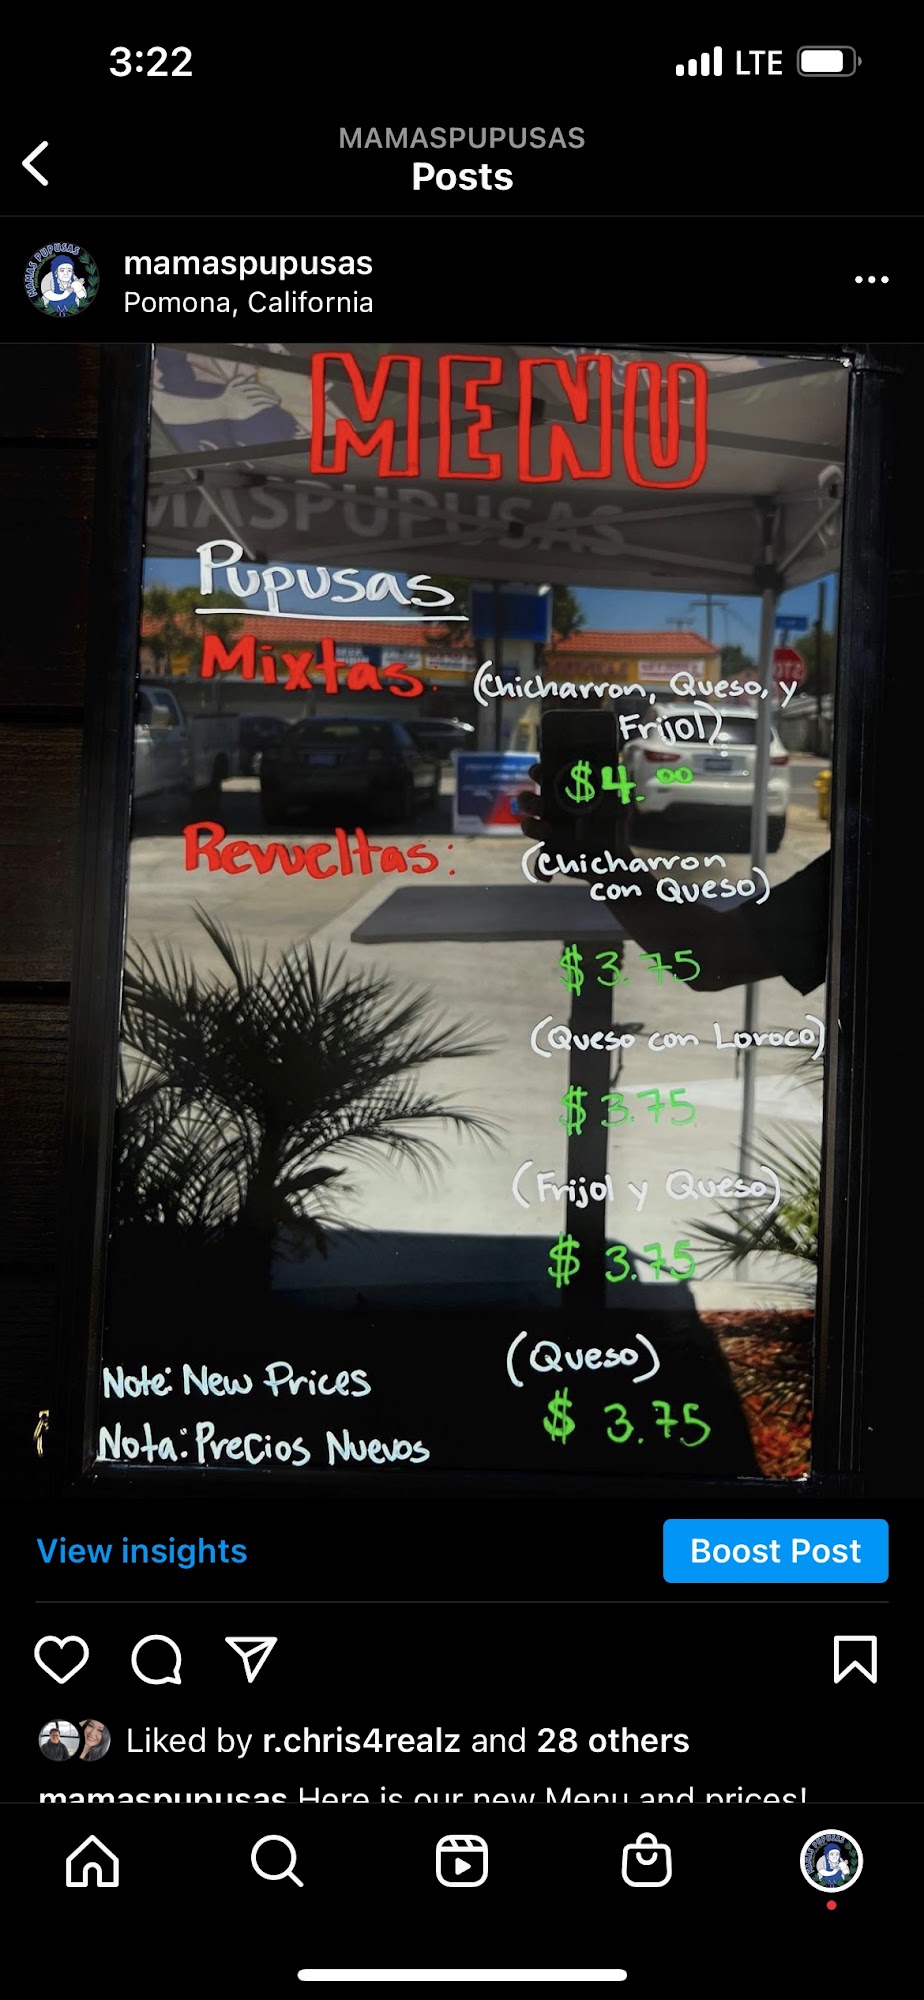 3:22
LTE
MAMASPUPUSAS
Posts
MAMAS PUPUSAS
mamaspupusas
Pomona, California
MENU
MASPUPUSAS
Pupusas
Mixtas:
(Chicharron, Queso, y
Frijol)
$4.00
Revueltas:
(Chicharron
con Queso)
$3.75
(Queso con Loroco)
$3.75
(Frijol y Queso)
$3.75
(Queso)
$3.75
Note: New Prices
Nota: Precios Nuevos
View insights
Boost Post
Liked by r.chris4realz and 28 others
mamaspupusas Here is our new Menu and prices!